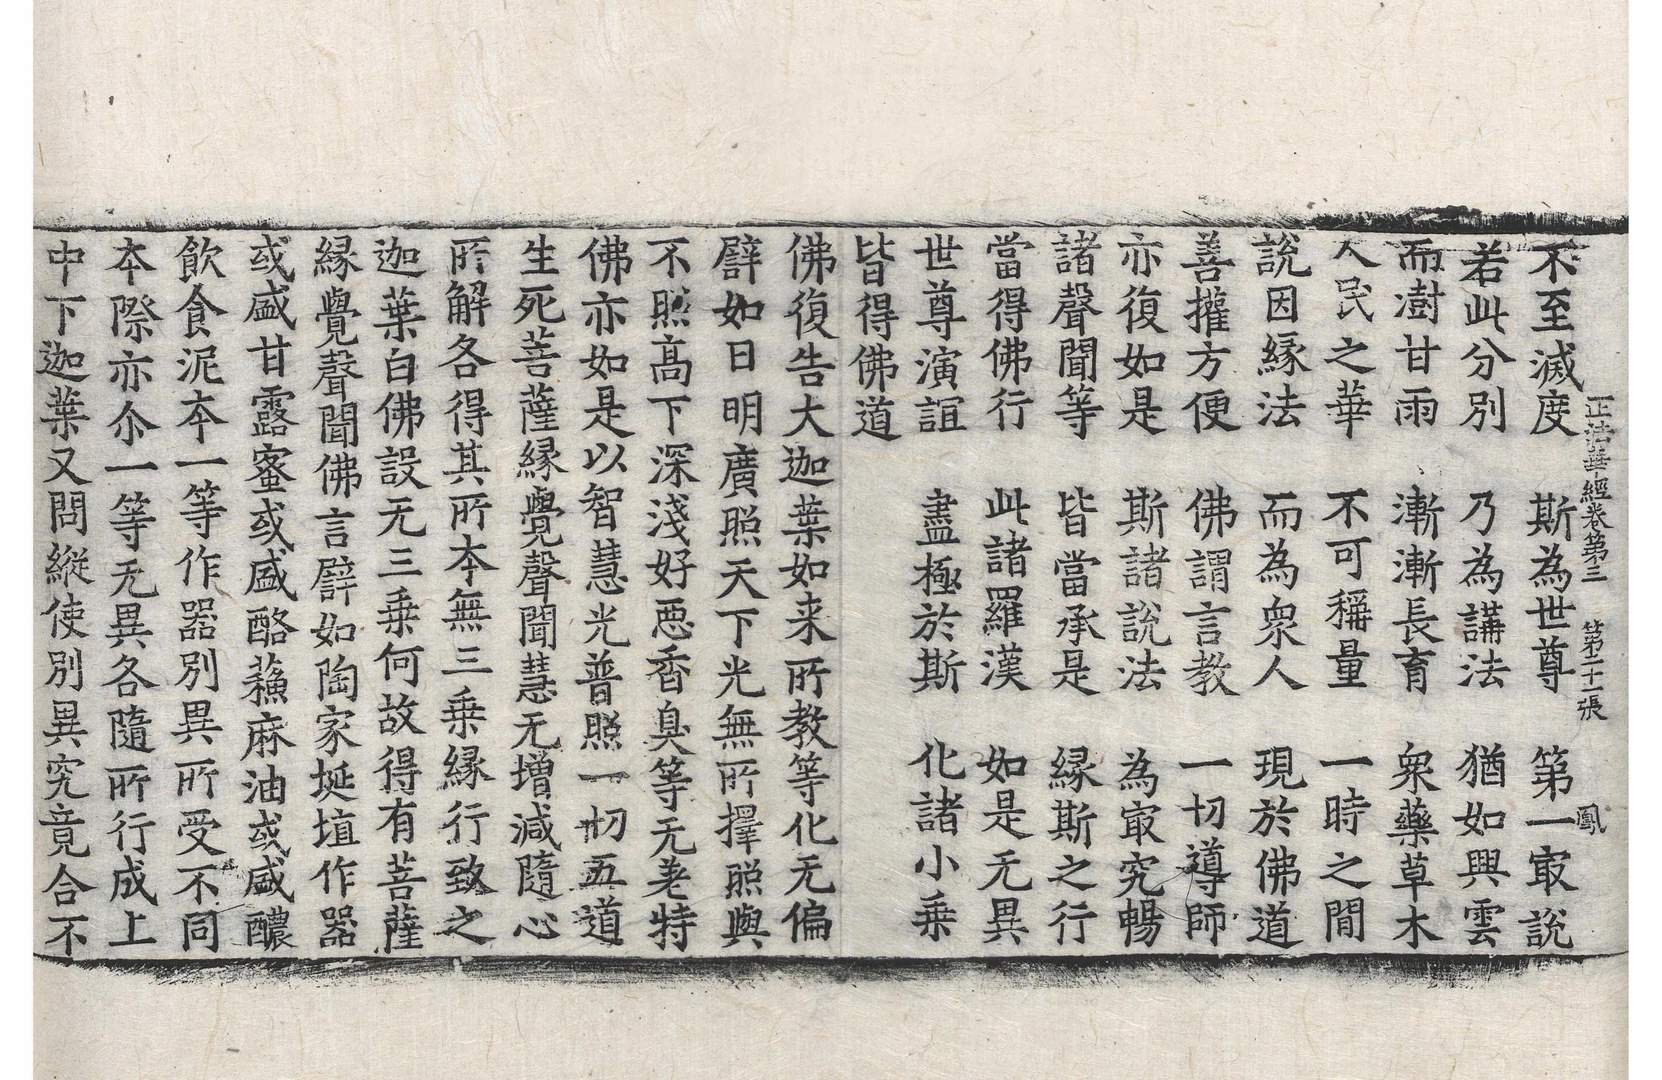 正法華經卷第三 第二十一張 鳳
不至滅度 斯為世尊 第一㝡說
若此分別 乃為講法 猶如興雲
而澍甘雨 漸漸長育 衆藥草木
人民之華 不可稱量 一時之閒
說因緣法 而為衆人 現於佛道
善攉方便 佛謂言教 一切導師
亦復如是 斯諸說法 為㝡究暢
諸聲聞等 皆當承是 緣斯之行
當得佛行 此諸羅漢 如是无異
世尊演誼 盡極於斯 化諸小乗
皆得佛道
佛復告大迦葉如来所教等化无偏
譬如日明廣照天下光無所擇照與
不照高下深淺好悪香臭等无差特
佛亦如是以智慧光普照一切五道
生死菩薩緣覺聲聞慧无增減隨心
所解各得其所本無三乗緣行致之
迦葉白佛設无三乗何故得有菩薩
緣覺聲聞佛言譬如陶家埏埴作器
或盛甘露蜜或盛酪蘓麻油或盛醲
飲食泥夲一等作器別異所受不同
夲際亦尒一等无異各隨所行成上
中下迦葉又問縱使別異究竟合不